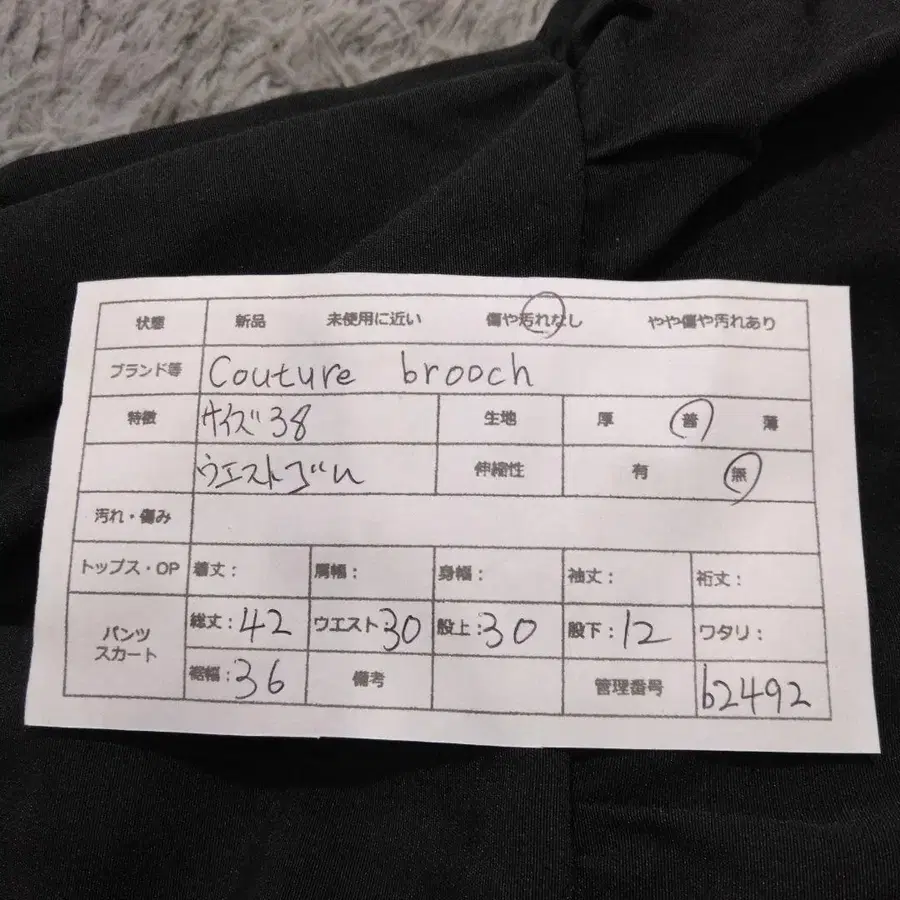 状態 新品 未使用に近い 傷や汚れなし やや傷や汚れあり
ブランド等 Couture brooch
特徴 サイズ38 生地 厚 普 薄
ウエストゴム 伸縮性 有 無
汚れ・傷み
トップス・OP 着丈: 肩幅: 身幅: 袖丈: 裄丈:
パンツ スカート 総丈:42 ウエスト:30 股上:30 股下:12 ワタリ:
裾幅:36 備考 管理番号 b2492